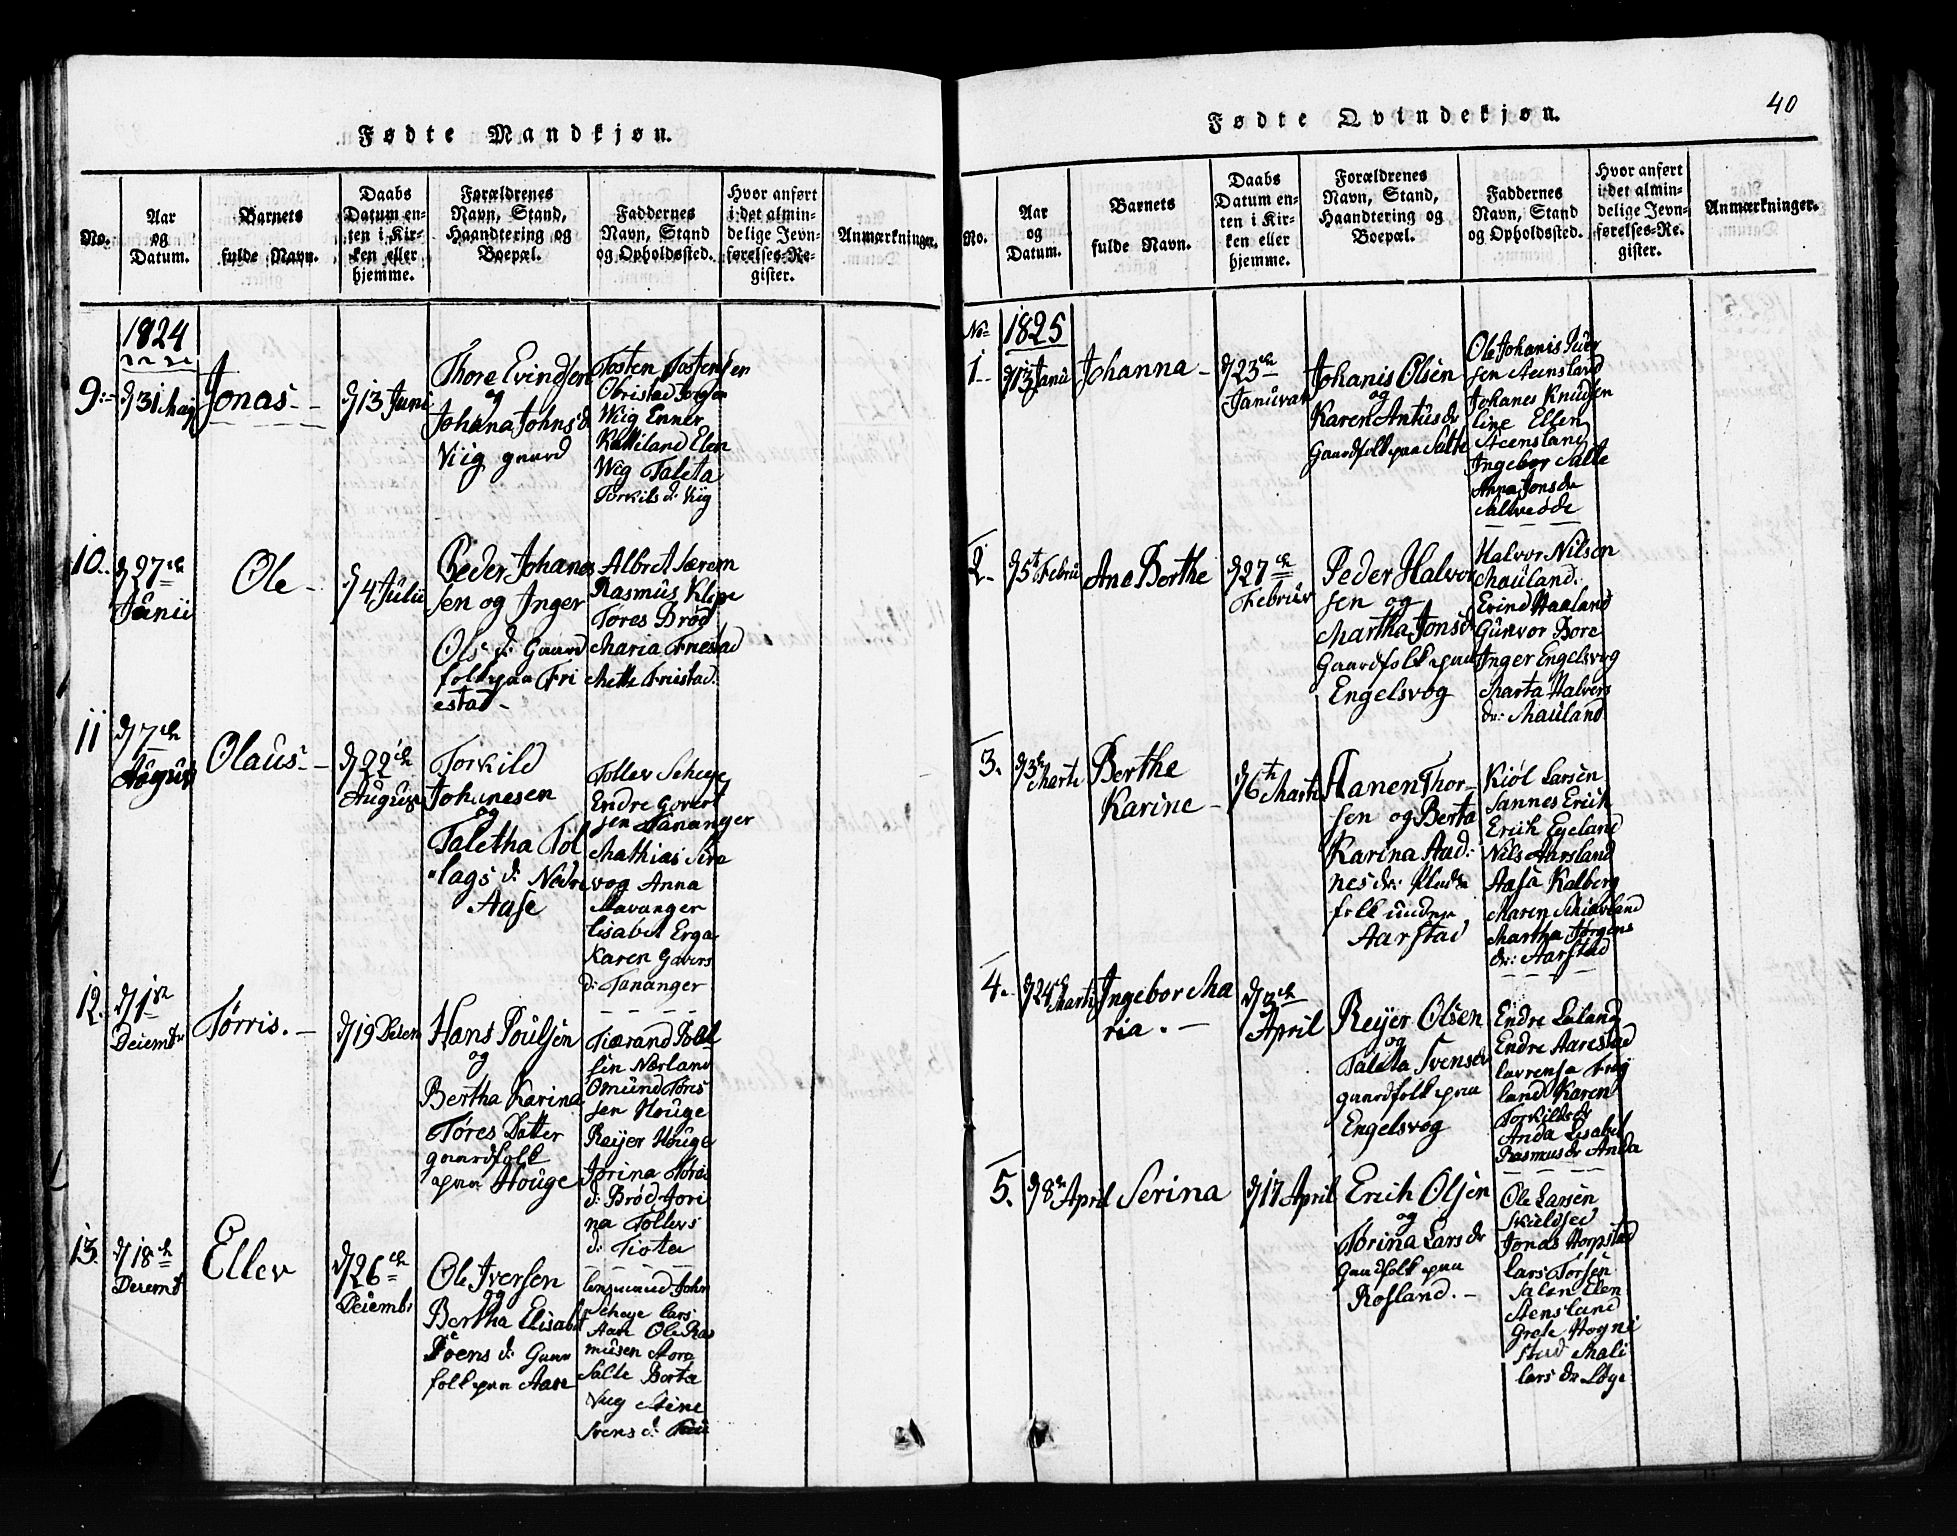 40
Fødte Mandkjøn.
No.
Aar
og
Datum.
Barnets
fulde Navn.
Daabs
Datum en-
ten i Kir-
ken eller
hjemme.
Forældrenes
Navn, Stand,
Haandtering og
Boepæl.
Faddernes
Navn, Stand
og Opholdssted.
Hvor anført
i det almin-
delige Jevn-
førelses-Re-
gister.
Anmærkninger.
1824
9
d 31 May
Jonas
d 13 Juni
Thore Evindsen
og
Johana Johns d
Viig gaard
Tosten Tostensen
Obristad Torger
Wiig Enner
Kulliland Elen
Wiig Taleta
Torkils d: Viig
10.
d 27de
Junii
Ole
d 4 Julii
Peder Johanes
sen og Inger
Ols d: Gaard
folk paa Fri
estad
Albret Særem
Rasmus Klepe
Tores Brød
Maria Friestad
Mette Friestad
11
d 7de
August
Olaus
d 22de
August
Torkild
Johanesen
og
Taletha Tol
lags d: Nedre
Aase
Tollev Scheye
Endre Govert
sen Tananger
Mathias Sire
vog Anna
Stavanger
Lisabet Erga
Karen Govers
d: Tananger
12.
d 1ste
Deiembr
Tørris.
d 19 Deiem
Hans Poulsen
og
Bertha Karina
Tøres Datter
gaardfolk
paa Houge
Tiærand Poul
sen Nærland
Omund Tøres
sen Houge
Reijer Houge
Jorina Tøres
d: Brød Jori
na Tollevs
d: Tiøta
13.
d 18de
Deiembr
Ellev
d 26de
Deiembr
Ole Iversen
og
Bertha Elisabet
Svens d: Gaard
folk paa Aase
John
Scheye Lars
Aase Ole Ras
musen
Salte Berta
Viig Stine
Svens d:
Fødte Qvindekjøn.
No.
Aar
og
Datum.
Barnets
fulde Navn.
Daabs
Datum en-
ten i Kir-
ken eller
hjemme.
Forældrenes
Navn, Stand,
Haandtering og
Boepæl.
Faddernes
Navn, Stand
og Opholdssted.
Hvor anført
i det almin-
delige Jevn-
førelses-Re-
gister.
Anmærkninger.
No
1825
1
d 13 Janu
Johanna
d 23de
Januvar
Johanis Olsen
og
Karen Antus dr
Gaardfolk paa Salte
Ole Johanis
sen Steensland
Johanes Knudsen
Line Ellen
Steensland
Ingebor Salte
Anna Jons dr
2.
d 5te Febru
Ane Berthe
d 27de
Februv
Peder Halvor
sen og
Martha Jons d
Gaardfolk paa
Engelsvog
Halvor Nilsen
Mauland.
Evind Haaland
Gunvor Bore
Inger Engelsvog
Marta Halvers
dr: Mauland
3.
d 3de
Marti
Berthe
Karine
d 6te Marti
Hanen Thor
sen og Berta
Karina Aad:
nes dr: Plads
folk under
Aarstad
Kiøl Larsen
Sannes Erich
Erich Egeland
Nils Aarsland
Aasa Kalberg
Maren Schiærland
Martha Jørgens
dr: Aarstad
4.
d 24de
Marti
Ingebor Ma
ria.
d 3de
April
Reijer Olsen
og
Taleta Svens dr
gaardfolk paa
Engelsvog
Endre Laland
Endre Aarestad
Lavrensa Frøy
land Karen
Torkilds dr
Anda Lisabet
Rasmus dr Anda
5.
d 8de April
Serina
d 17 April
Erich Olsen
og
Torina Lars dr
Gaardfolk paa
Rosland.
Ole Larsen
Jonas Hognestad
Lars Torsen
Salen Elen
Stensland
Grete Hogne
stad Mali
Lars dr Løge